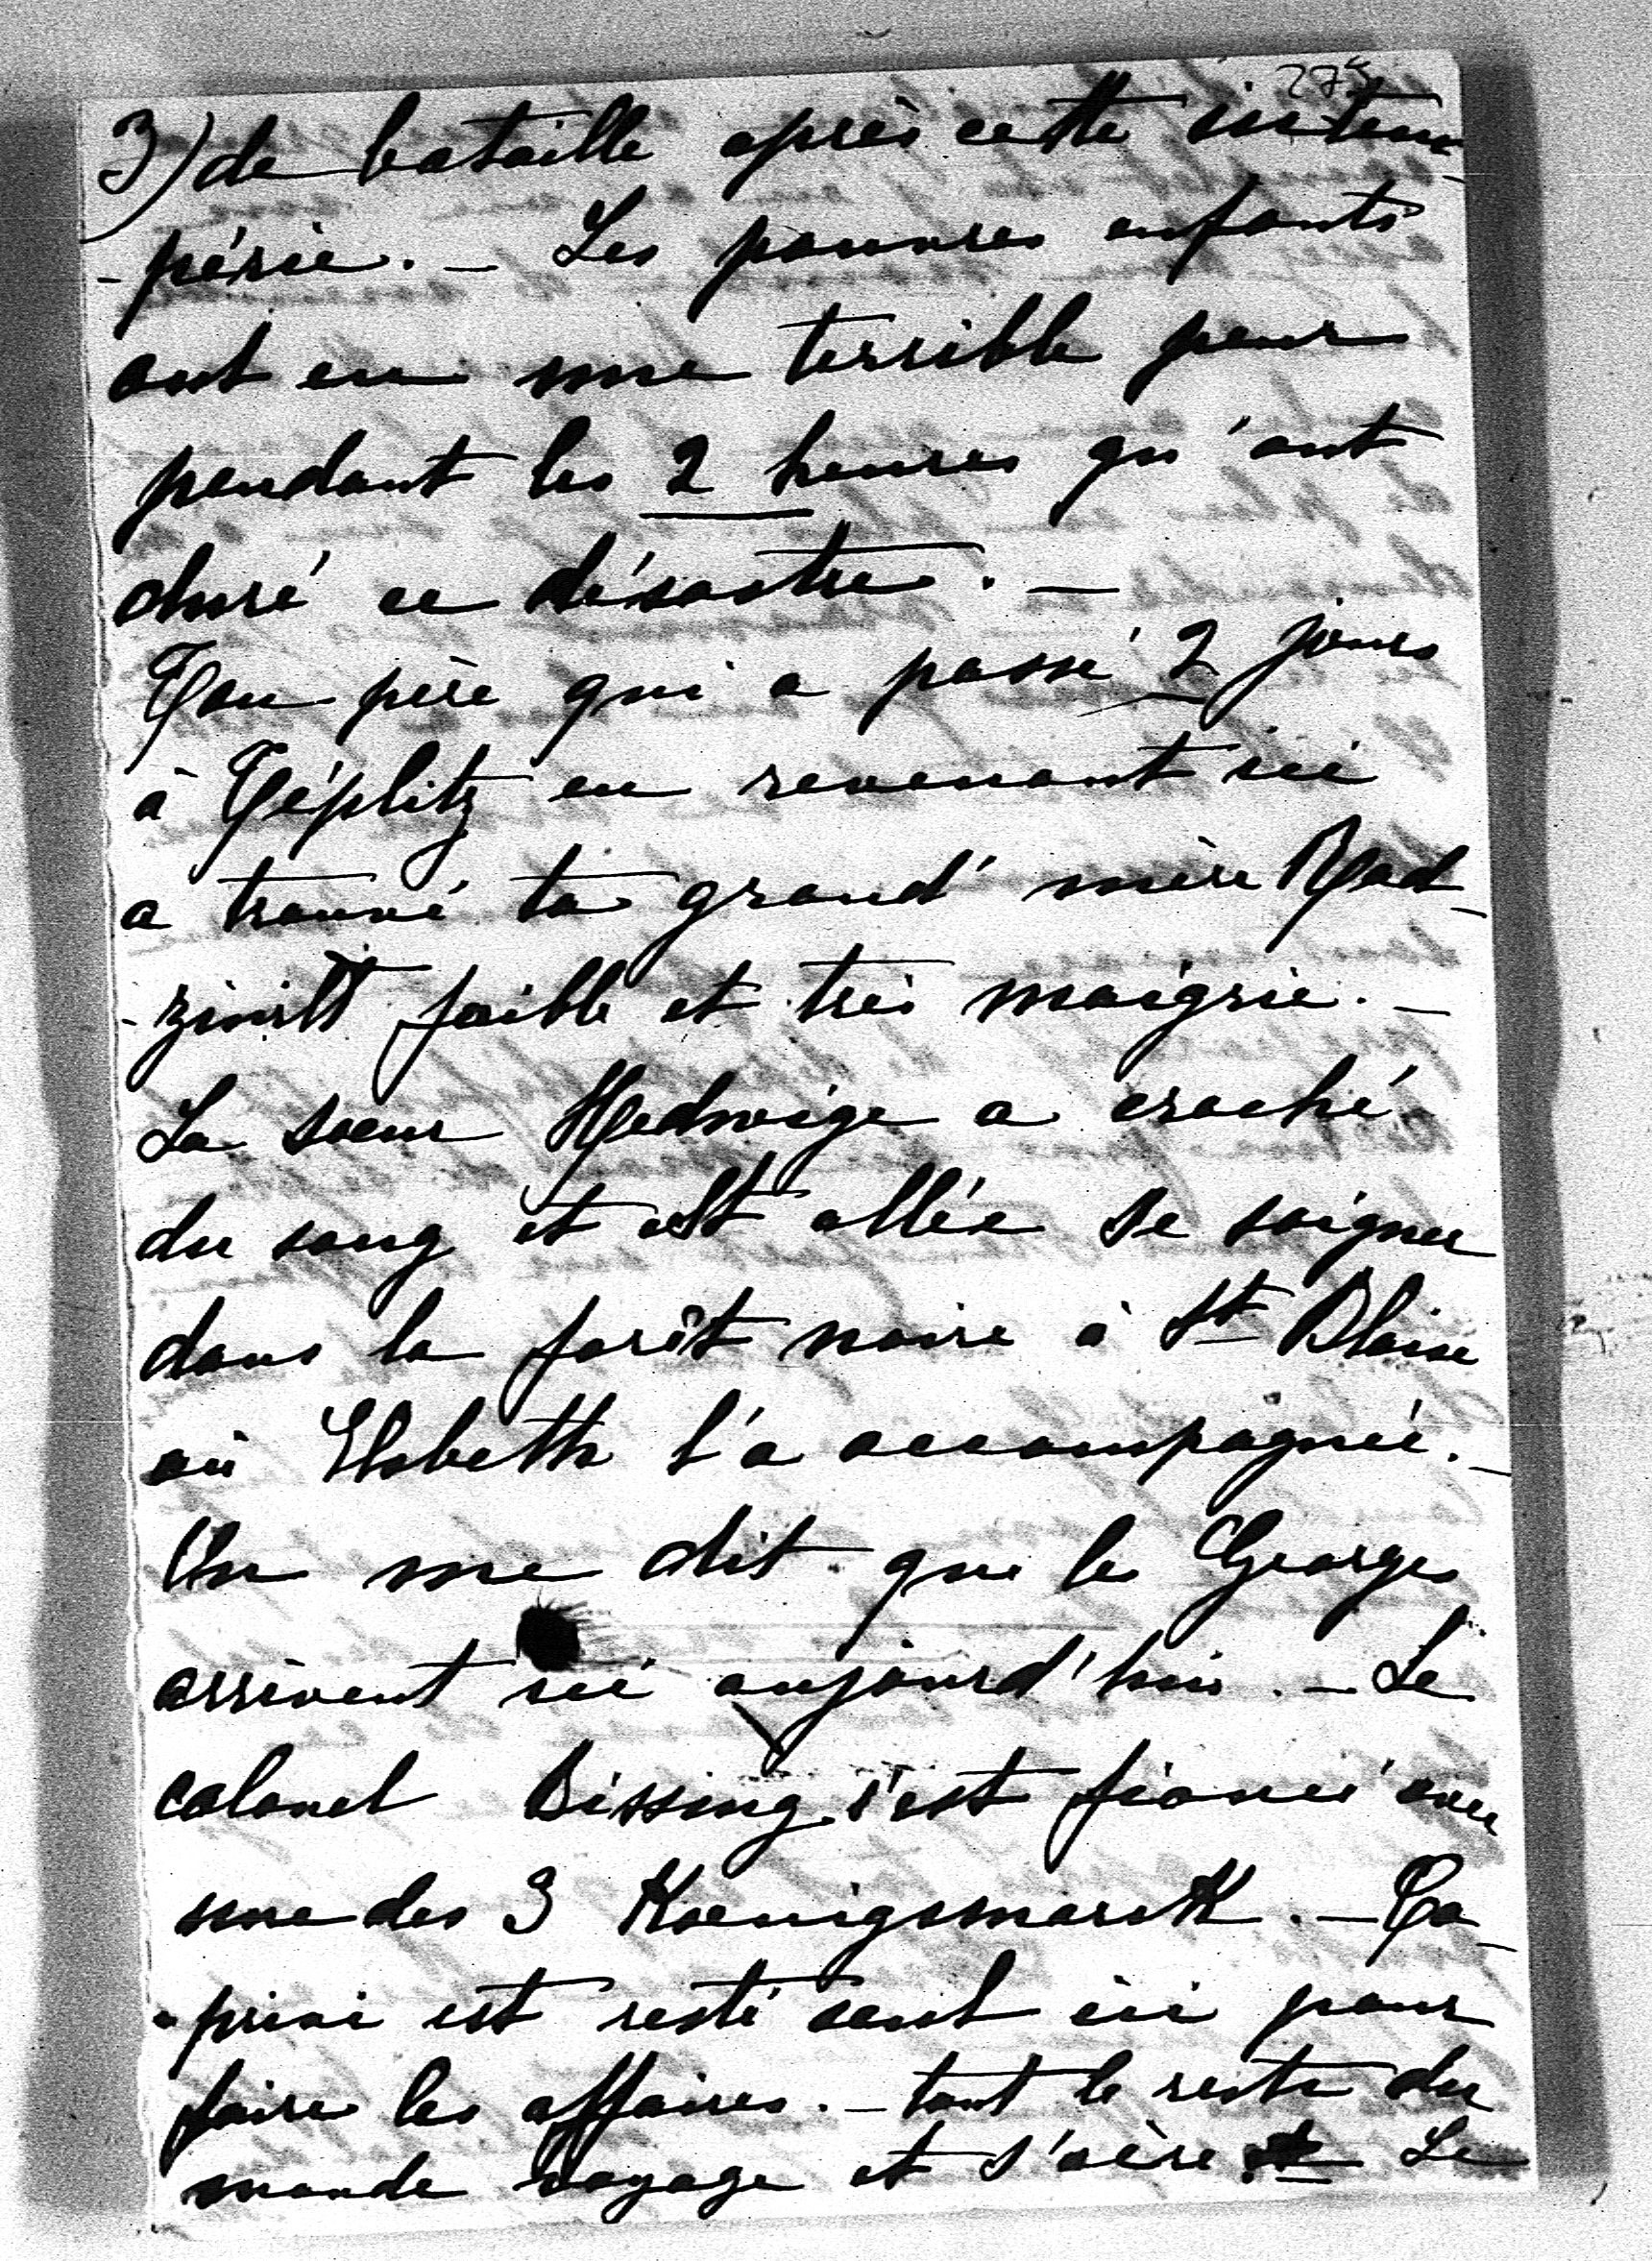 275
3) de bataille après cette intem-
-périe. - Les pauvres enfants
ont eu une terrible peur
pendant les 2 heures qu'ont
duré ce désastre. -
Ton père qui a passé 2 jours
à Téplitz en revenant ici
a trouvé ta grand' mère Rad-
-ziwill faible et très maigrie. -
La soeur Hedwige a craché
du sang et est allée se soigner
dans la forêt noire à St Blaise
où Elsbeth l'a accompagnée. -
On me dit que les Georges
arrivent ici aujourd'hui. - Le
colonel Bissing s'est fiancé avec
une des 3 Koenigsmarck. - Ca-
-privi est resté seul ici pour
faire les affaires. - tout le reste du
monde voyage et s'aère. - Le